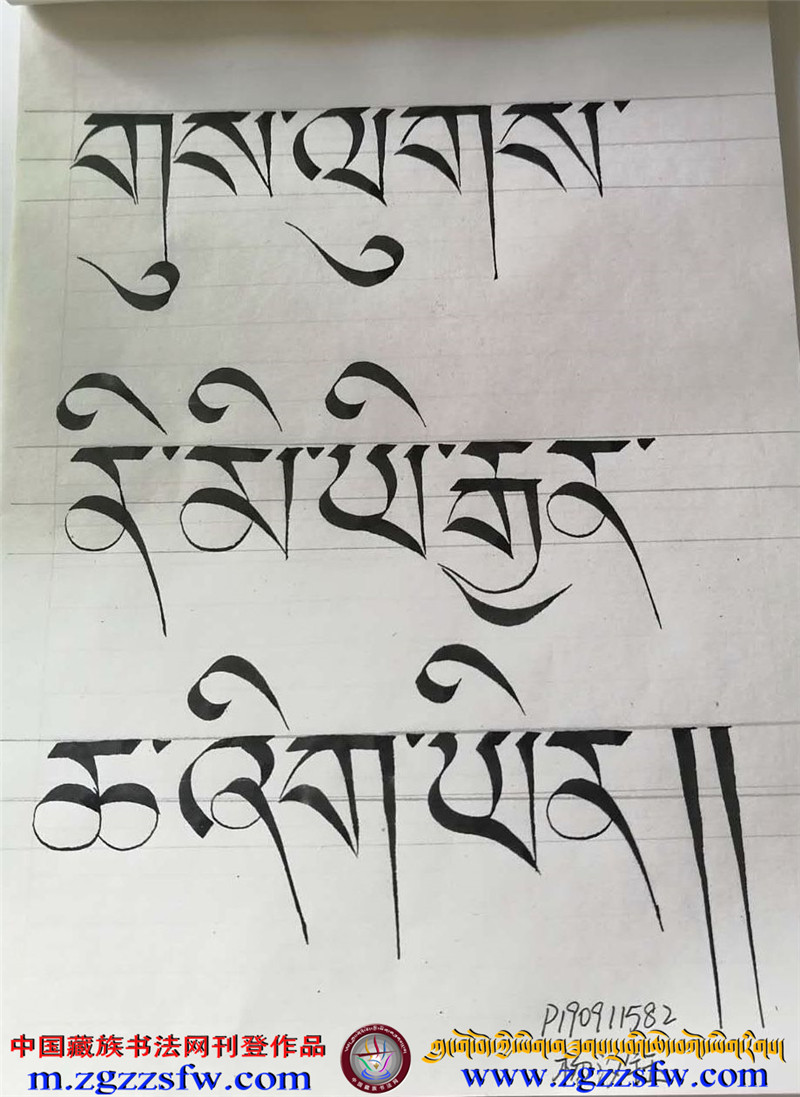 གུས་ལུགས་
ནི་མི་ཡི་རྒྱན་
ཆ་ཞིག་ཡིན།།
P190911582
中国藏族书法网刊登作品
m.zgzzsfw.com
www.zgzzsfw.com